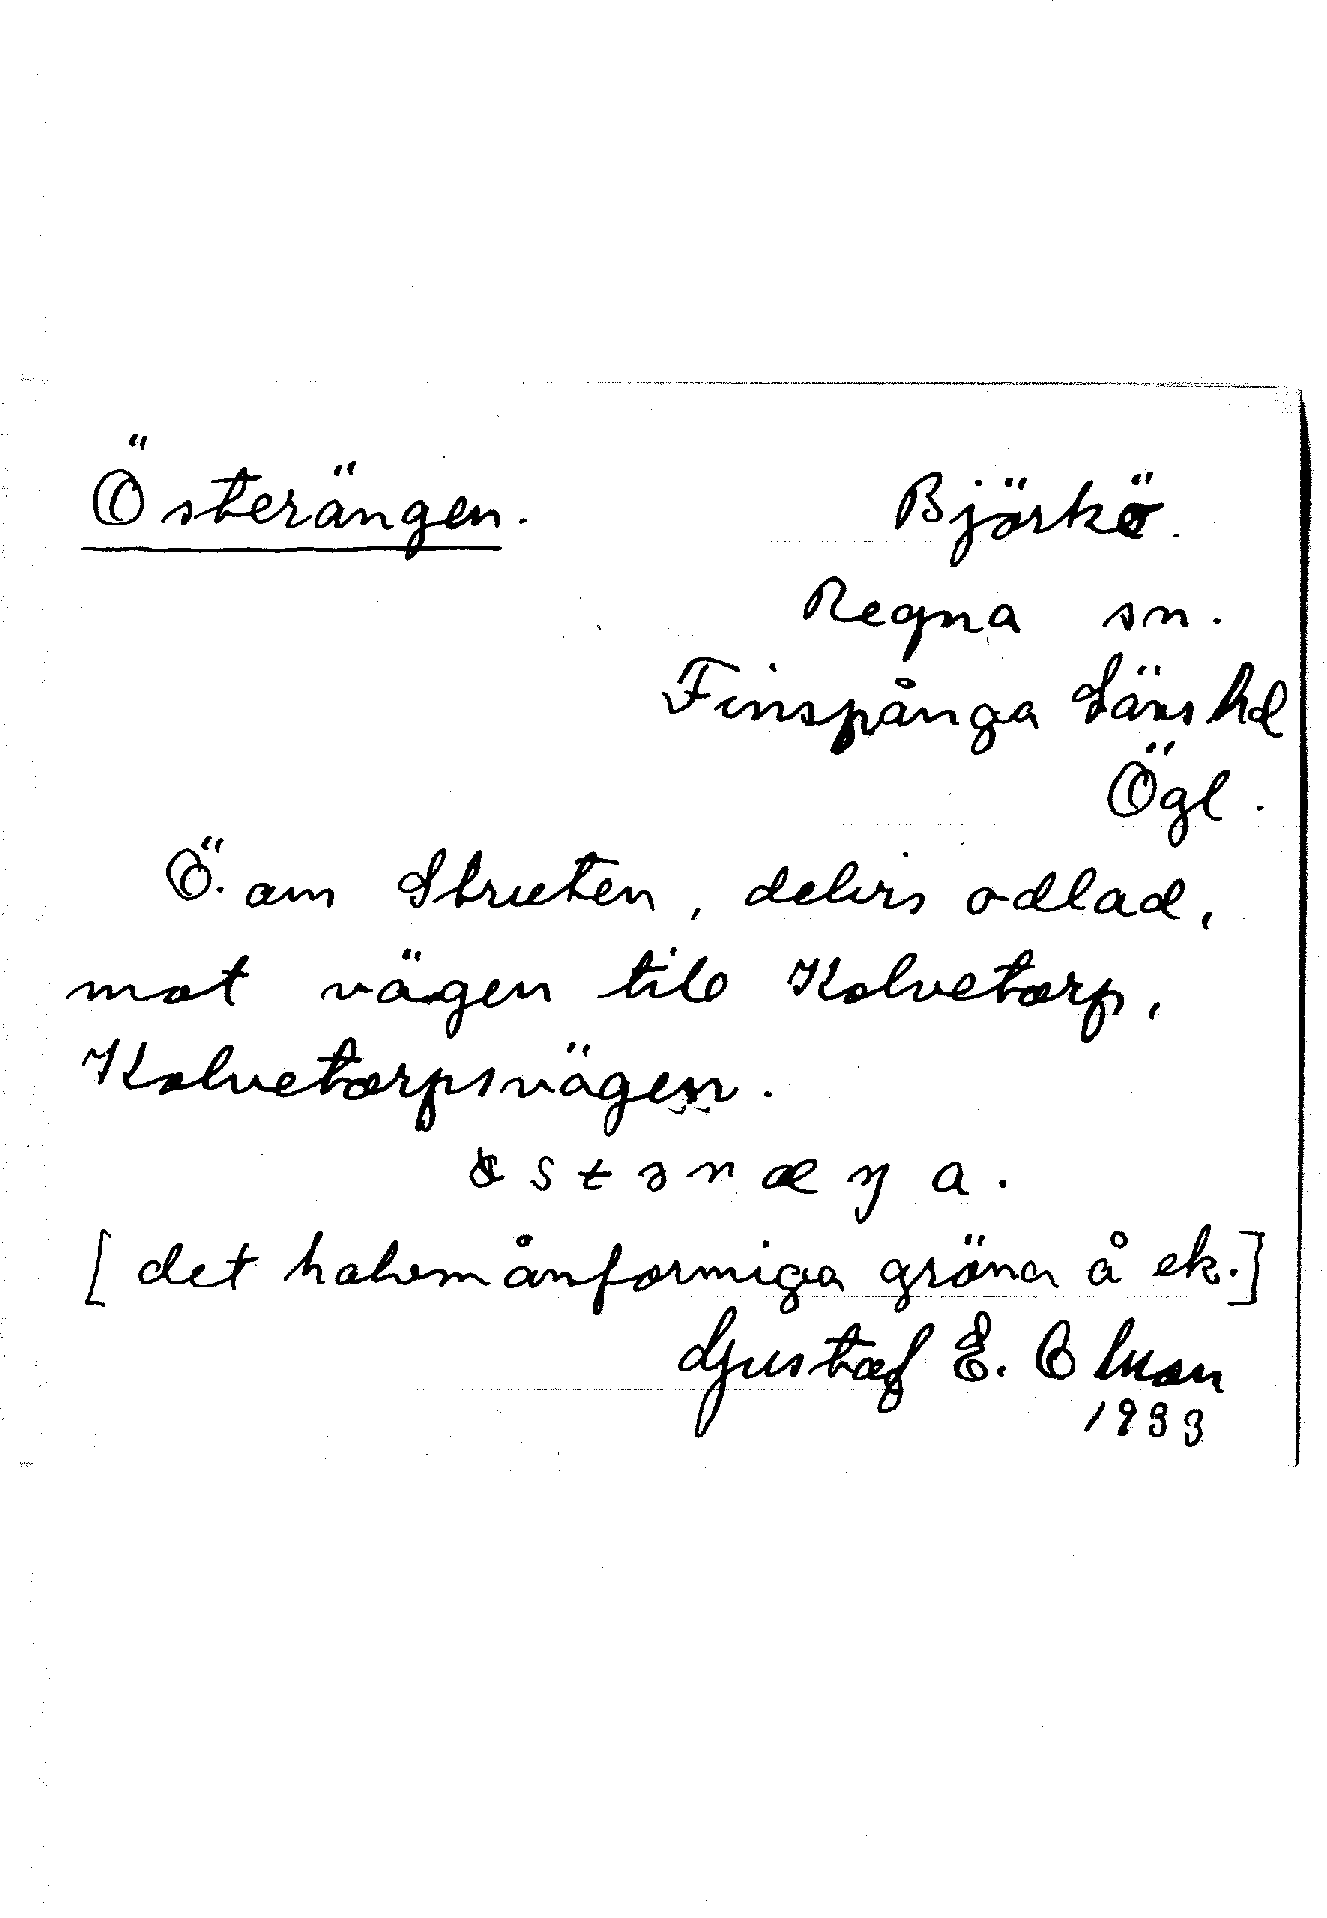 Österängen. Björkö.
Regna sn.
Finspånga Läns hd
Ögl.
Ö. om Struten, delvis odlad,
mot vägen till Kolvetorp,
Kolvetorpsvägen.
östəræŋa.
[det halvmånformiga gröna å ek.]
Gustaf E. Olsson
1933